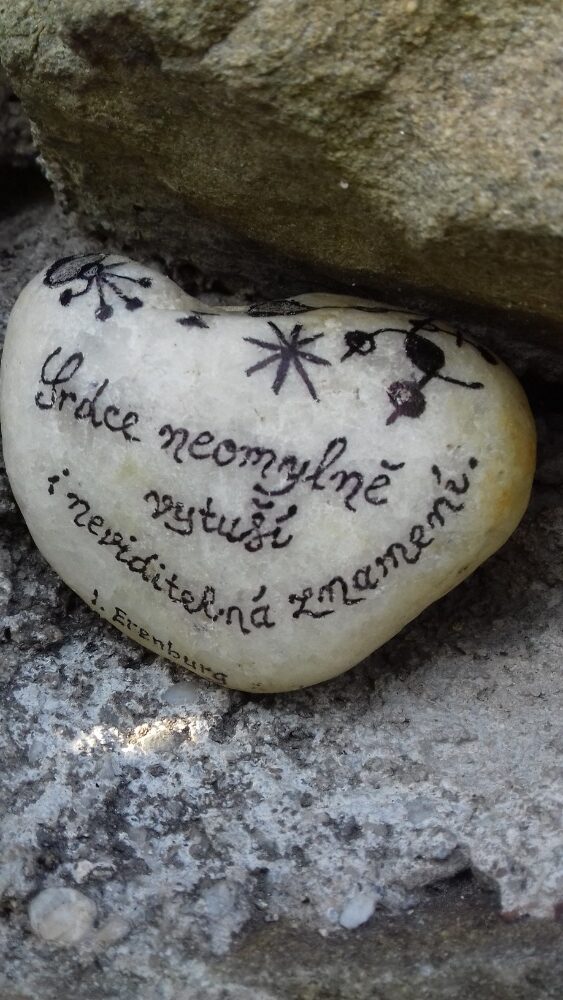 Srdce neomylně
vytuší
i neviditelná znamení.
I. Erenburg